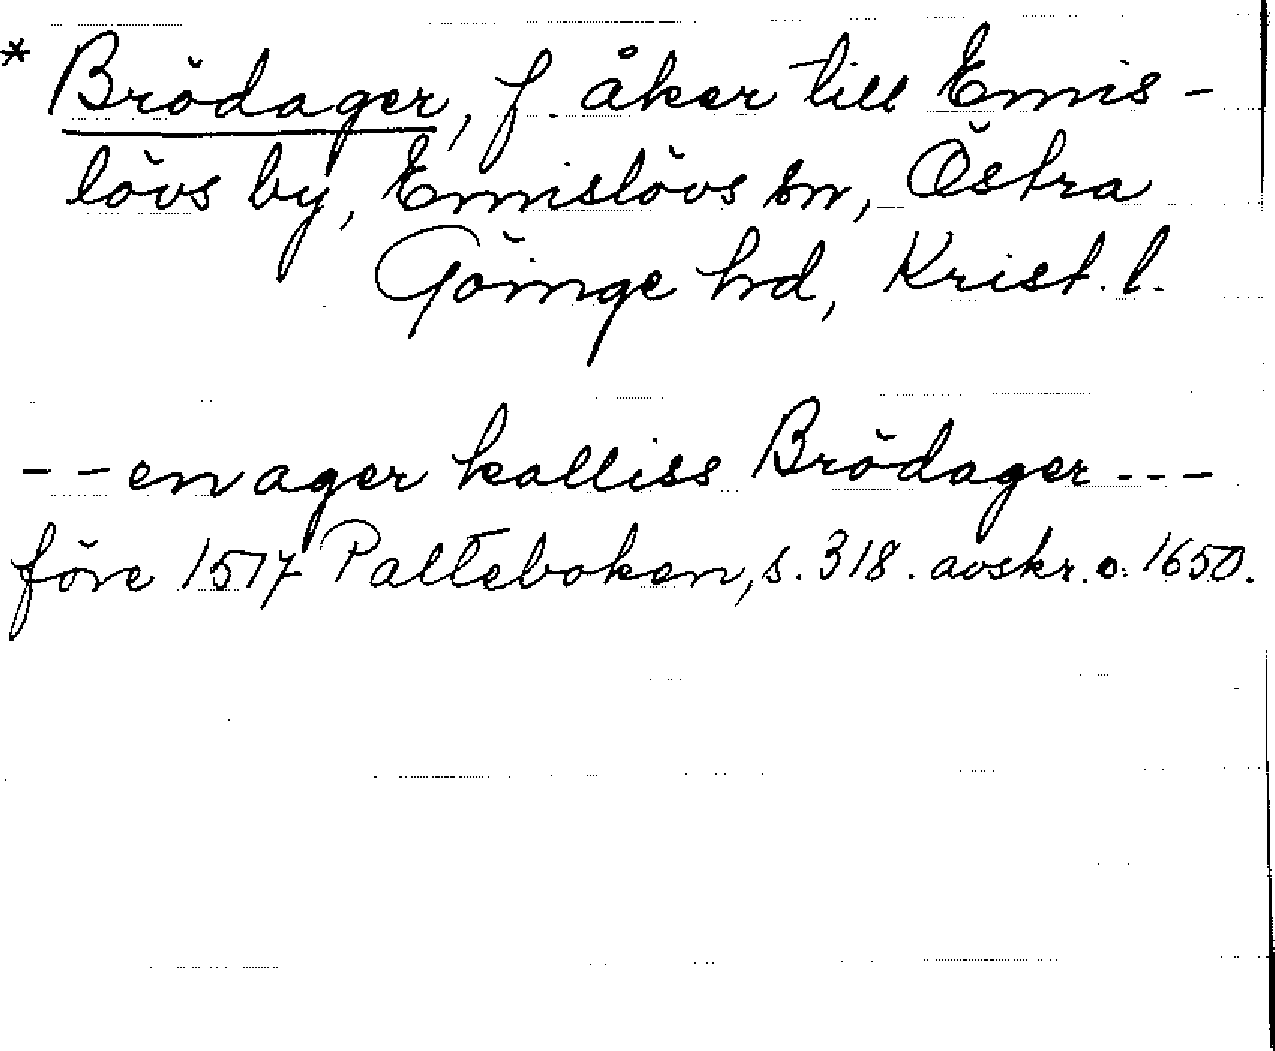 * Brödager, f. åker till Emis-
lövs by, Emislövs sn, Östra
Göinge hd, Krist. l.
-- en ager kalliss Brödager ---
före 1517 Palteboken, s. 318. avskr. o. 1650.